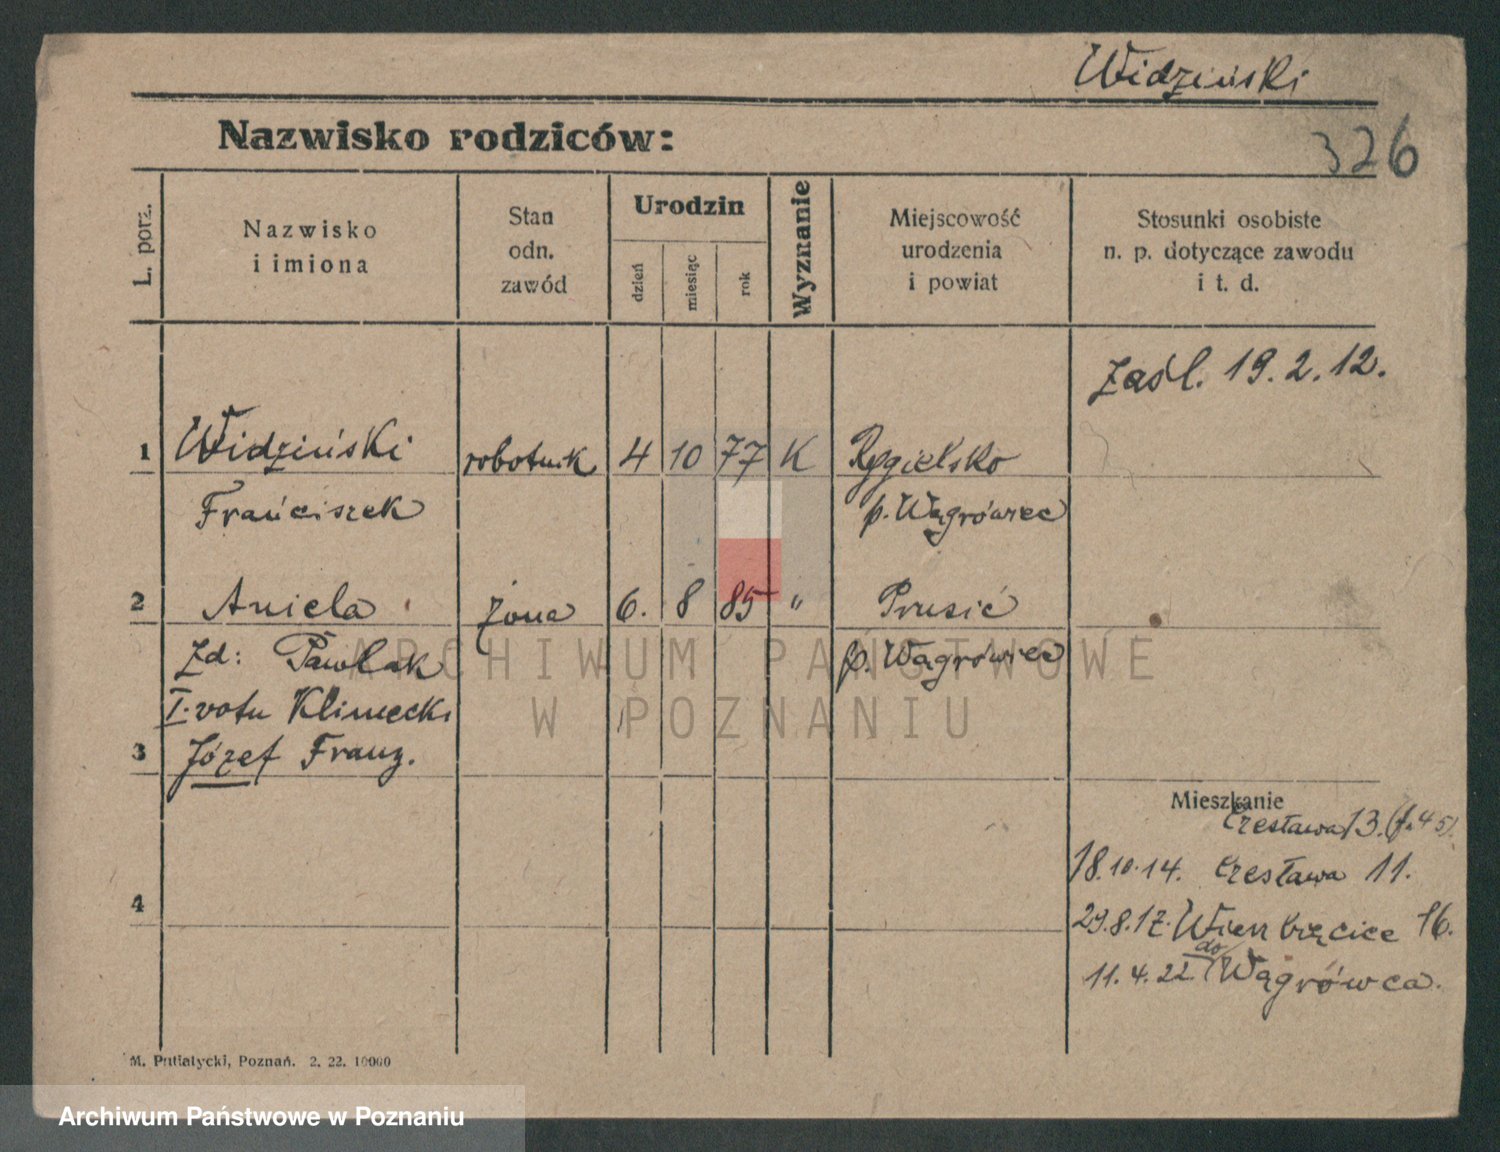 Widziński
Nazwisko rodziców:
326
L. porz.
Nazwisko
i imiona
Stan
odn.
zawód
Urodzin
dzień
miesiąc
rok
Wyznanie
Miejscowość
urodzenia
i powiat
Stosunki osobiste
n. p. dotyczące zawodu
i t. d.
Zaśl. 19.2.12.
1 Widziński robotnik 4 10 77 K Rgielsko
Franciszek p. Wągrówiec
2 Aniela żona 6. 8 85 " Prusić
zd: Pawlak p. Wągrówiec
I. votu Klimecki
3 Józef Franz.
Mieszkanie
Czesława 13. (f. 45).
18.10.14. Czesława 11.
4
29.8.17. Wierzbięcice 16.
11.4.22. do Wągrówca.
M. Putiatycki, Poznań. 2. 22. 10000
ARCHIWUM PAŃSTWOWE
W POZNANIU
Archiwum Państwowe w Poznaniu